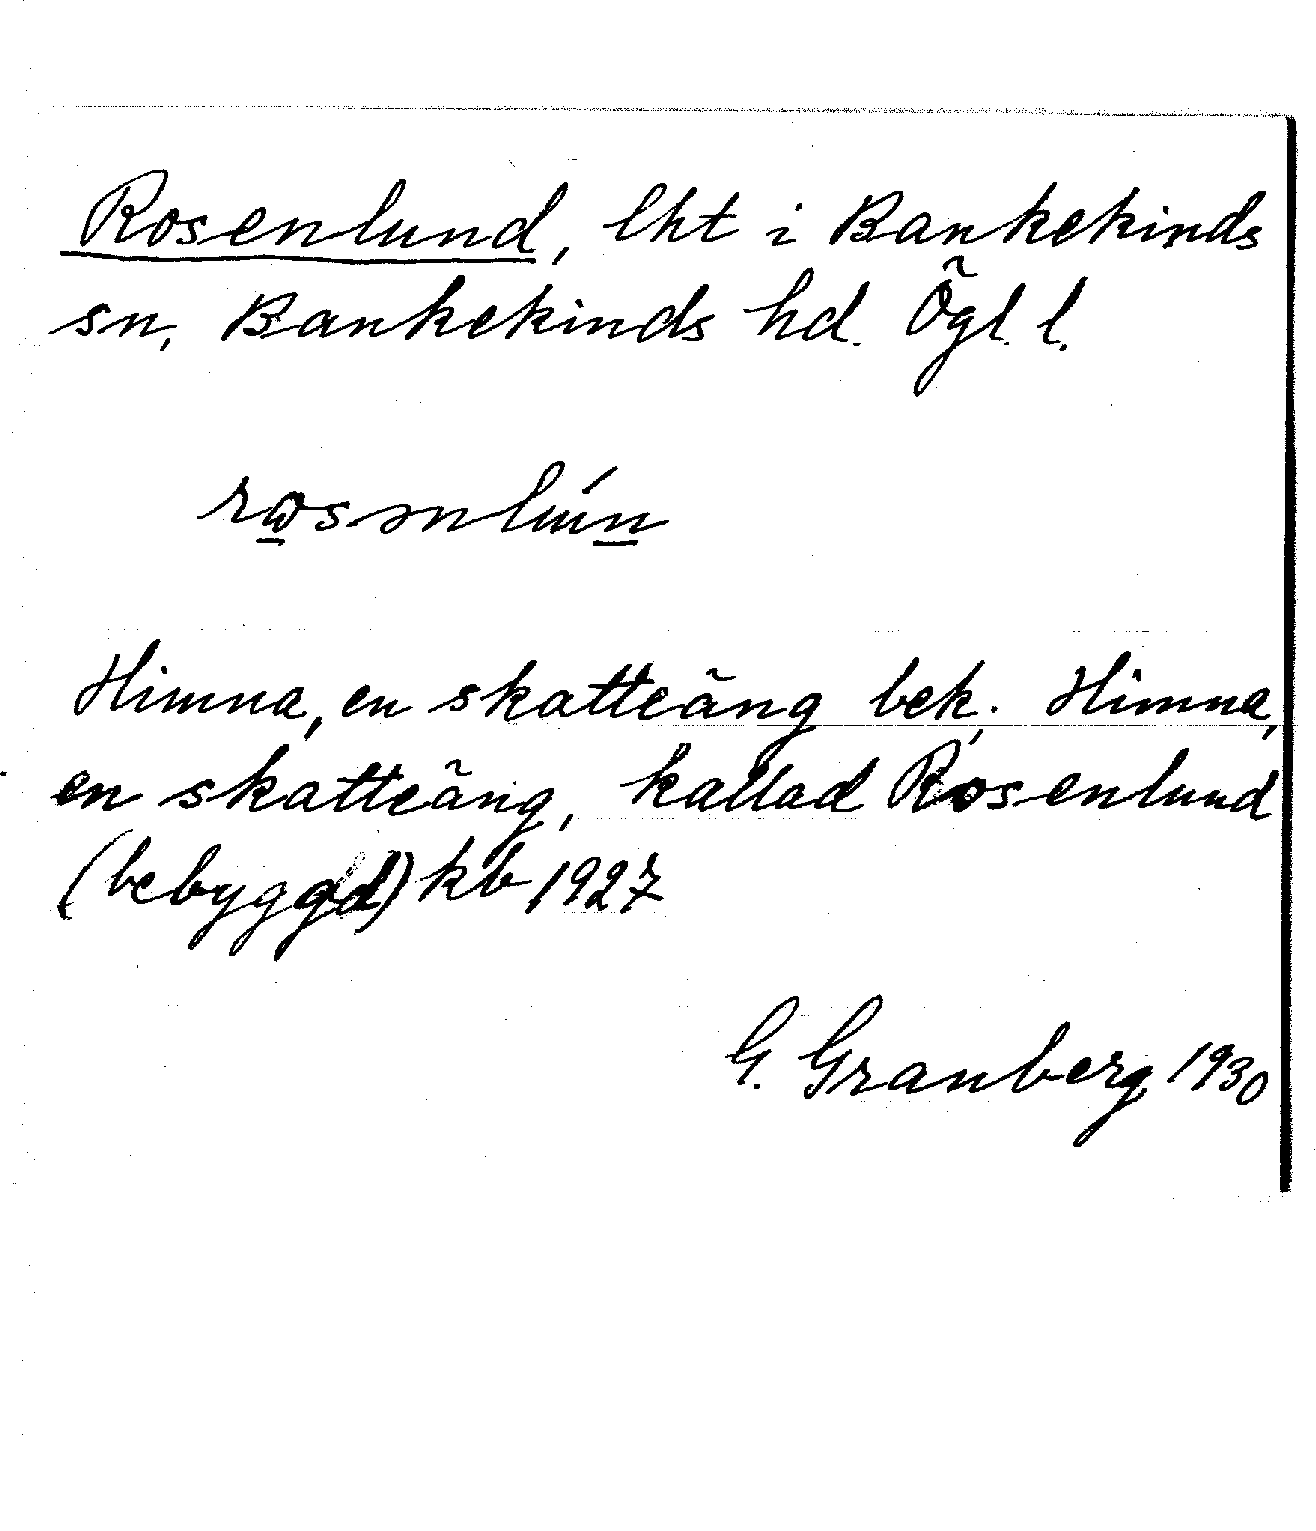 Rosenlund, lht i Bankekinds
sn, Bankekinds hd. Ögl. l.
rɷsənlún
Himna, en skatteäng bek. Himna,
en skatteäng, kallad Rosenlund
(bebyggd) kb 1927
G. Granberg 1930